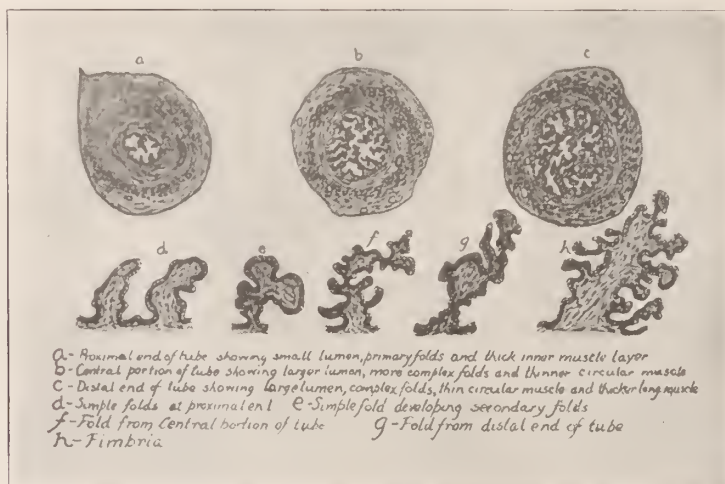 a
b
c
d
e
f
g
h
a - Proximal end of tube showing small lumen, primary folds and thick inner muscle layer
b - Central portion of tube showing larger lumen, more complex folds and thinner circular muscle
c - Distal end of tube showing large lumen, complex folds, thin circular muscle and thicker long. muscle
d - Simple folds at proximal end e - Simple fold developing secondary folds
f - Fold from Central portion of tube g - Fold from distal end of tube
h - Fimbria